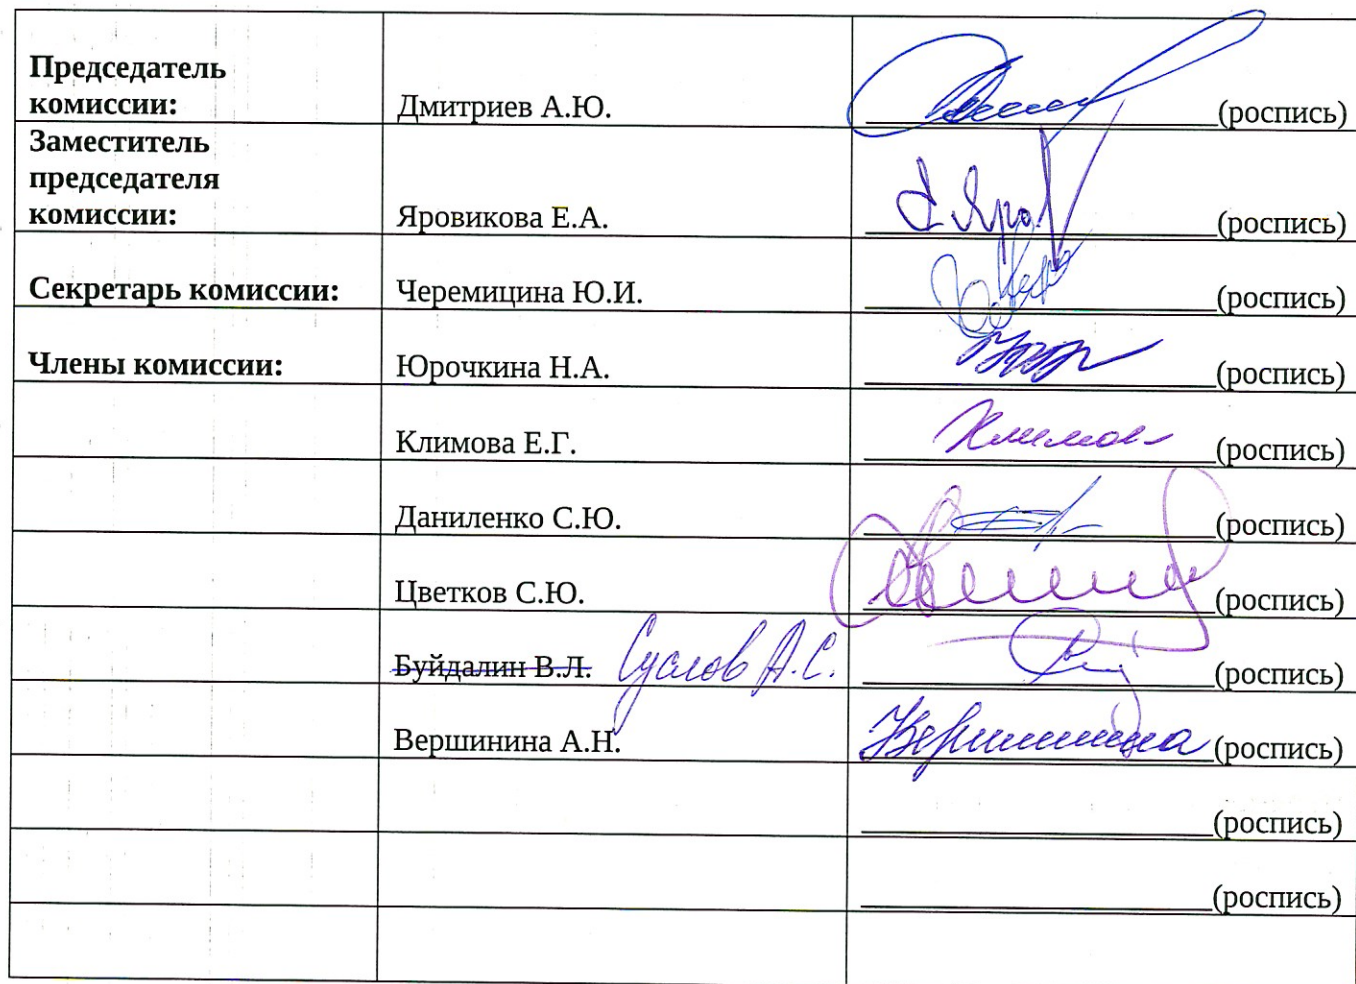 Председатель
комиссии: Дмитриев А.Ю. (роспись)
Заместитель
председателя
комиссии: Яровикова Е.А. (роспись)
Секретарь комиссии: Черемицина Ю.И. (роспись)
Члены комиссии: Юрочкина Н.А. (роспись)
Климова Е.Г. Климов (роспись)
Даниленко С.Ю. (роспись)
Цветков С.Ю. (роспись)
Буйдалин В.Л. Суслов А.С. (роспись)
Вершинина А.Н. Вершинина (роспись)
(роспись)
(роспись)